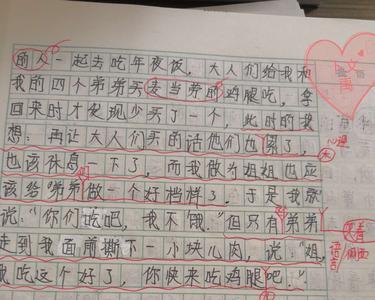 的人一起去吃年夜饭，大人们给我和
我的四个弟弟买麦当劳的鸡腿吃，拿
回来时才发现少买了一个，此时的我
想：再让大人们买的话他们也累了，
也该休息一下了，而我做为姐姐也应
该给弟弟做一个好档样了。于是我就
说："你们吃吧，我不饿。"但只有弟弟
走到我面前撕下一小块儿肉，说："姐，
我吃这个好了，你快来吃鸡腿吧."
心理
语言